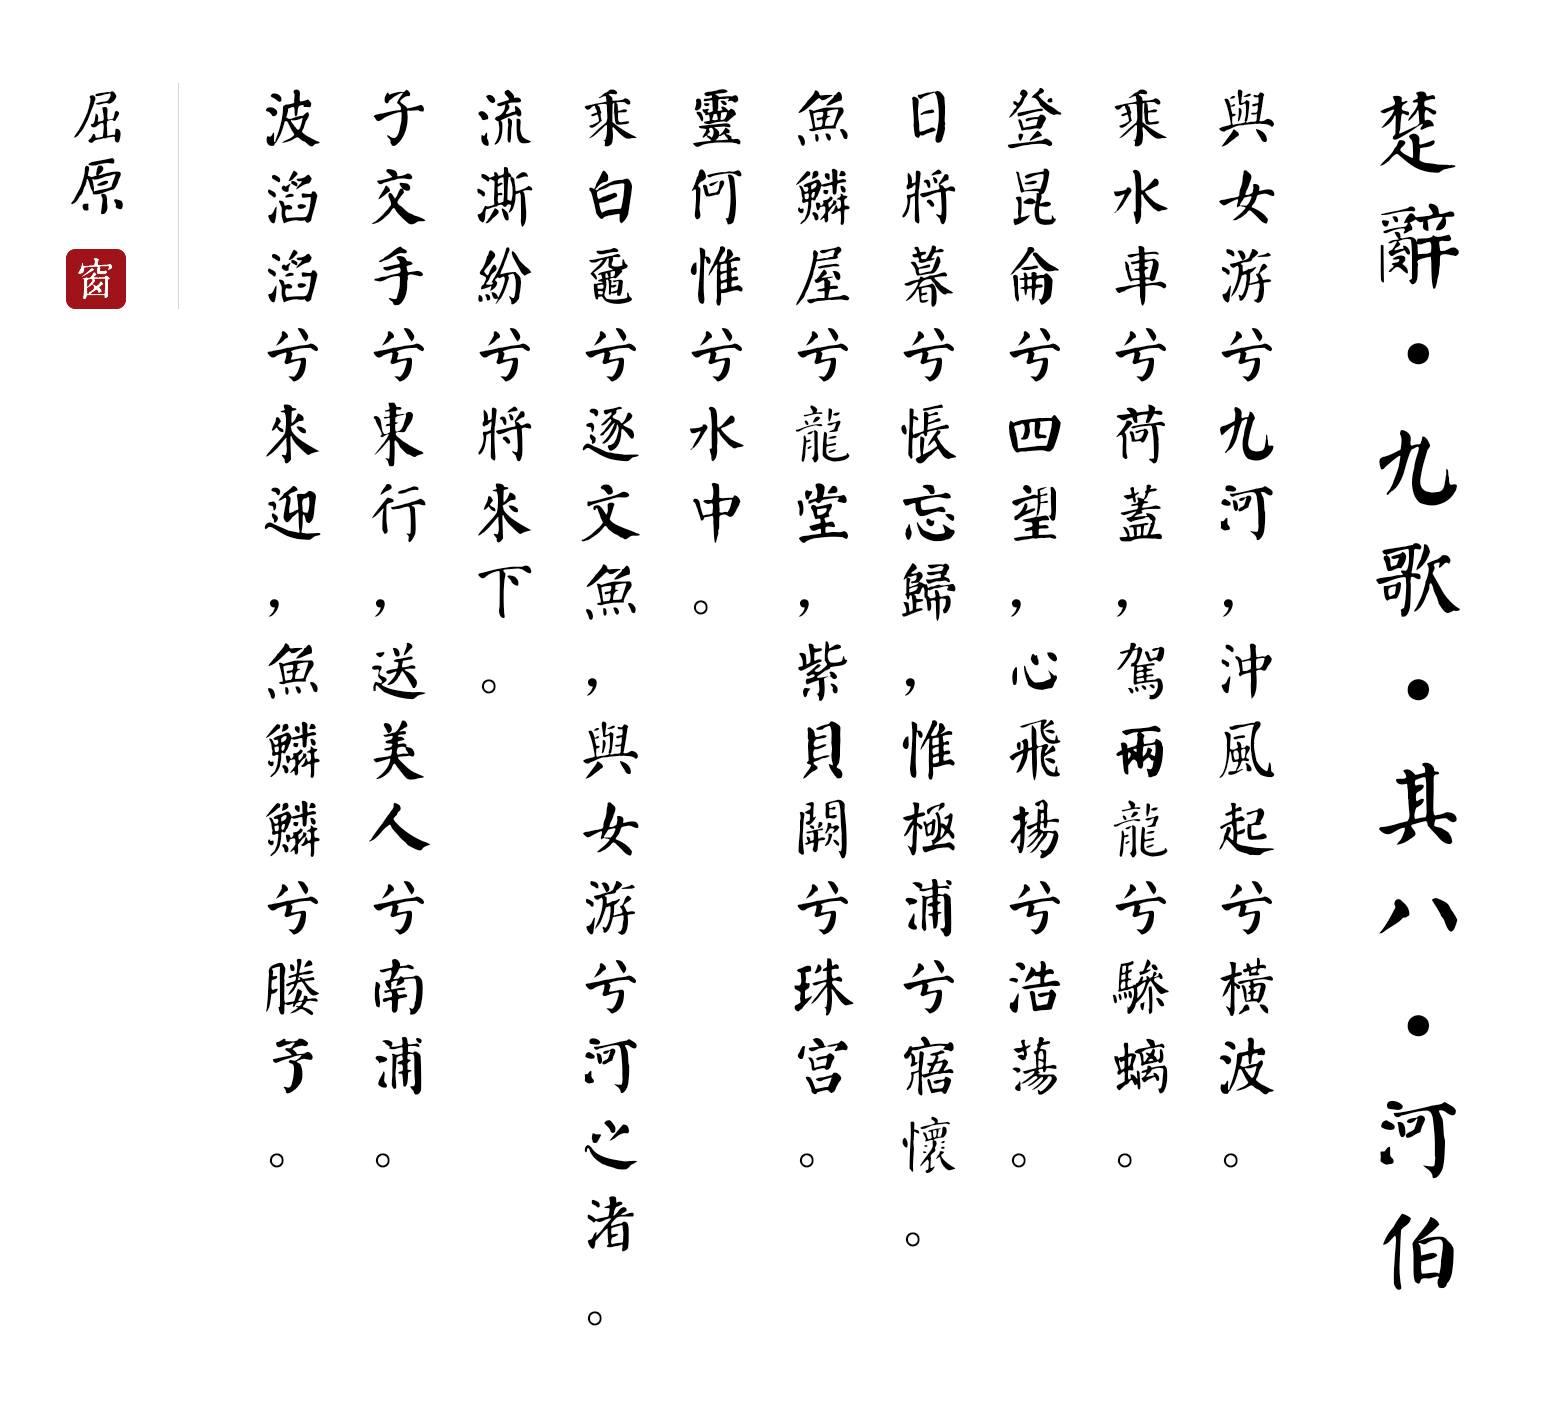 楚辭・九歌・其八・河伯
與女游兮九河，沖風起兮橫波。
乘水車兮荷蓋，駕兩龍兮驂螭。
登昆侖兮四望，心飛揚兮浩蕩。
日將暮兮悵忘歸，惟極浦兮寤懷。
魚鱗屋兮龍堂，紫貝闕兮珠宮。
靈何惟兮水中。
乘白黿兮逐文魚，與女游兮河之渚。
流澌紛兮將來下。
子交手兮東行，送美人兮南浦。
波滔滔兮來迎，魚鱗鱗兮媵予。
屈原
窗